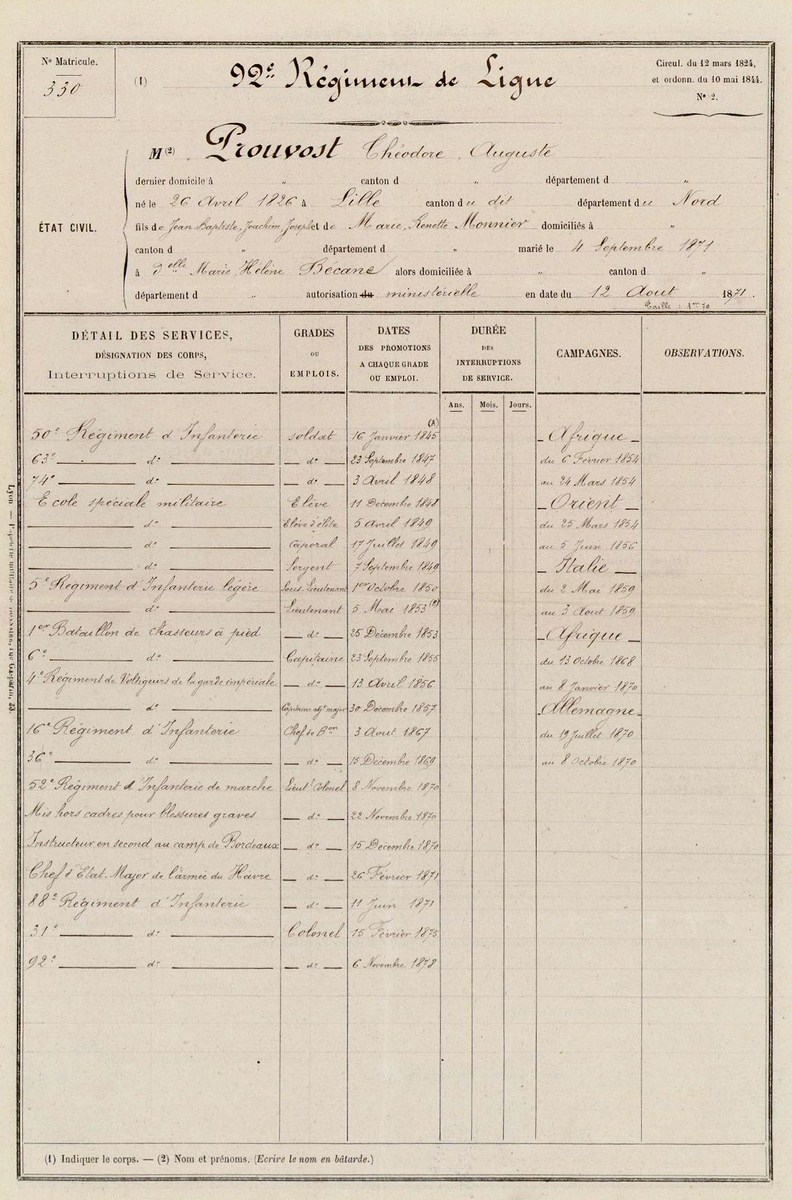 No Matricule.
330
(1) 92e Régiment de Ligne
Circul. du 12 mars 1824,
et ordonn. du 10 mai 1844.
No 2.
M(2) Prouvost Théodore, Auguste
dernier domicile à " canton d " département d "
né le 26 Avril 1826 à Lille canton du dit département du Nord
ÉTAT CIVIL.
fils de Jean Baptiste, Joachim, Joseph et de Marie, Renette Monnier domiciliés à "
canton d " département d " marié le 4 Septembre 1871
à Delle Marie, Hélène Bécane alors domiciliée à " canton d "
département d " autorisation du ministérielle en date du 12 Aout 1871.
Taille : 1m 70
DÉTAIL DES SERVICES,
DÉSIGNATION DES CORPS,
Interruptions de Service.
GRADES
OU
EMPLOIS.
DATES
DES PROMOTIONS
A CHAQUE GRADE
OU EMPLOI.
DURÉE
DES
INTERRUPTIONS
DE SERVICE.
CAMPAGNES.
OBSERVATIONS.
Ans. Mois. Jours.
50e Régiment d'Infanterie soldat 16 Janvier 1845 (A) Afrique
63e do do 23 Septembre 1847 du 6 Février 1854
74e do do 3 Avril 1848 au 24 Mars 1854
Ecole spéciale militaire Elève 11 Décembre 1848 Orient
do Elève d'élite 5 Avril 1849 du 25 Mars 1854
do Caporal 17 Juillet 1849 au 5 Juin 1856
do Sergent 7 Septembre 1849 Italie
5e Régiment d'Infanterie légère Sous-Lieutenant 1er Octobre 1850 du 2 Mai 1859
do Lieutenant 5 Mai 1853 au 3 Aout 1859
1er Bataillon de chasseurs à pied do 25 Décembre 1853 Afrique
6e do Capitaine 23 Septembre 1855 du 13 Octobre 1868
4e Régiment de Voltigeurs de la garde impériale do 13 Avril 1856 au 8 Janvier 1870
do Capitaine adjt major 30 Décembre 1857 Allemagne
16e Régiment d'Infanterie Chef de Bon 3 Aout 1867 du 19 Juillet 1870
36e do do 15 Décembre 1869 au 8 Octobre 1870
52e Régiment d'Infanterie de marche Lieutt Colonel 8 Novembre 1870
Mis hors cadres pour blessures graves do 22 Novembre 1870
Instructeur en second au camp de Bordeaux do 15 Décembre 1870
Chef d'Etat-Major de l'armée du Havre do 26 Février 1871
88e Régiment d'Infanterie do 11 Juin 1871
31e do Colonel 15 Février 1875
92e do do 6 Novembre 1878
(1) Indiquer le corps. — (2) Nom et prénoms. (Ecrire le nom en bâtarde.)